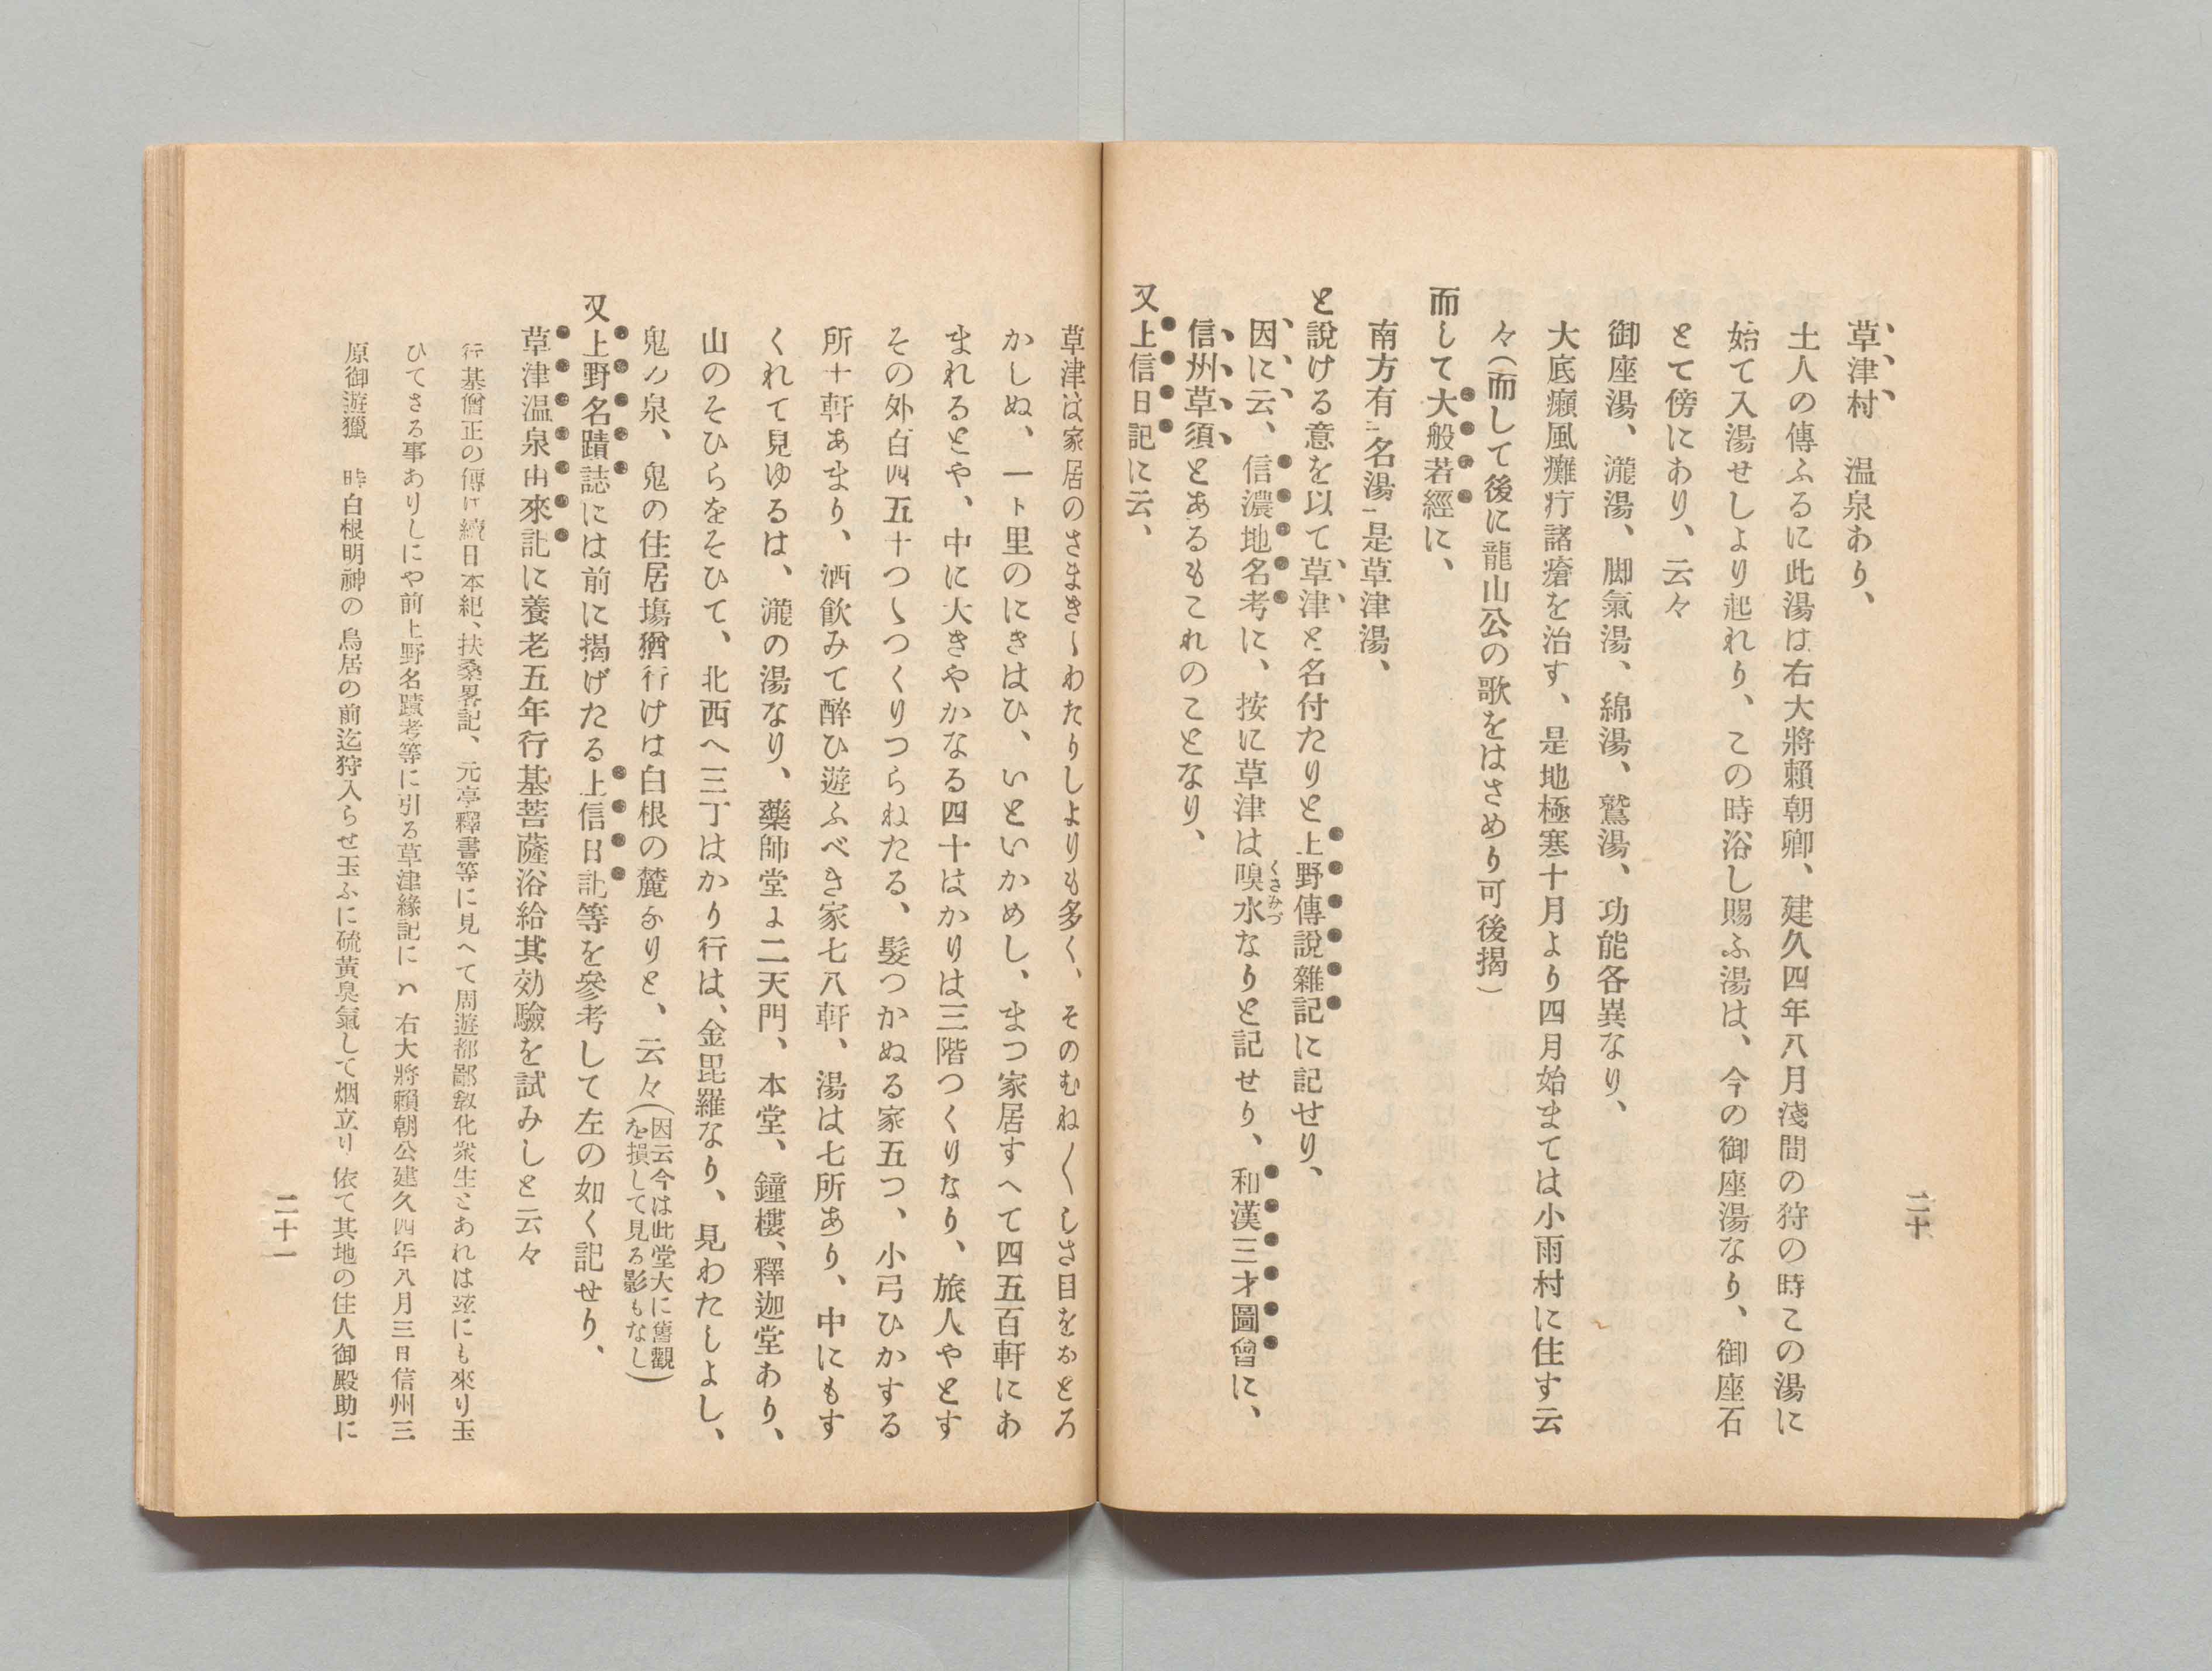 草津村　温泉あり、
土人の傳ふるに此湯は右大將賴朝卿、建久四年八月淺間の狩の時この湯に
始て入湯せしより起れり、この時浴し賜ふ湯は、今の御座湯なり、御座石
とて傍にあり、云々
御座湯、瀧湯、脚氣湯、綿湯、鷲湯、功能各異なり、
大底癩風癱疔諸瘡を治す、是地極寒十月より四月始まては小雨村に住す云
々（而して後に龍山公の歌をはさめり可後揭）
而して大般若經に、
南方有二名湯一是草津湯、
と說ける意を以て草津と名付たりと上野傳說雜記に記せり、
因に云、信濃地名考に、按に草津は嗅水くさみづなりと記せり、和漢三才圖會に、
信州草須とあるもこれのことなり、
又上信日記に云、
二十
草津は家居のさまき〻わたりしよりも多く、そのむね〱しさ目をおとろ
かしぬ、一ト里のにきはひ、いといかめし、まつ家居すへて四五百軒にあ
まれるとや、中に大きやかなる四十はかりは三階つくりなり、旅人やとす
その外百四五十つゝつくりつらねたる、髮つかぬる家五つ、小弓ひかする
所十軒あまり、酒飮みて醉ひ遊ふべき家七八軒、湯は七所あり、中にもす
くれて見ゆるは、瀧の湯なり、藥師堂ょ二天門、本堂、鐘樓、釋迦堂あり、
山のそひらをそひて、北西へ三丁はかり行は、金毘羅なり、見わたしよし、
鬼の泉、鬼の住居塲猶行けは白根の麓なりと、云々（因云今は此堂大に舊觀を損して見る影もなし）
又上野名蹟誌には前に揭げたる上信日記等を參考して左の如く記せり、
草津温泉由來記に養老五年行基菩薩浴給其効驗を試みしと云々
行基僧正の傳は續日本紀、扶桑畧記、元亨釋書等に見へて周遊都鄙敎化衆生とあれは玆にも來り玉
ひてさる事ありしにや前上野名蹟考等に引る草津緣記にハ右大將賴朝公建久四年八月三日信州三
原御遊獵　時白根明神の鳥居の前迄狩入らせ玉ふに硫黃臭氣して烟立り依て其地の住人御殿助に
二十一